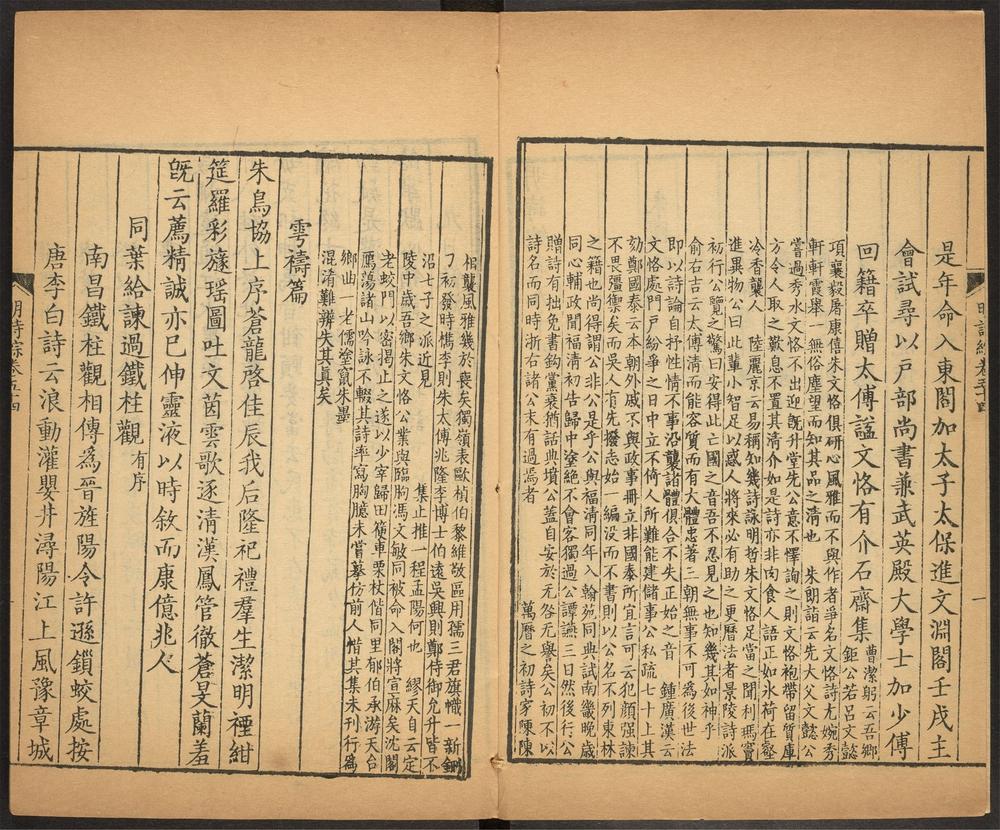 明詩綜卷五十四
一
是年命入東閣加太子太保進文淵閣壬戌主
會試尋以戶部尚書兼武英殿大學士加少傅
回籍卒贈太傅諡文恪有介石齋集
曹潔躬云吾鄉
鉅公若呂文懿
項襄毅屠康僖朱文恪俱研心風雅而不與作者爭名文恪詩尤婉秀
軒軒霞舉一無俗塵望而知其品之清也 朱朗詣云先大父文懿公
嘗過秀水文恪不出迎旣升堂先公意不懌詢之則文恪袍帶留質庫
方令人取之歎息不置其清介如是詩亦非肉食人語正如氷荷在壑
冷香襲人 陸麗京云易稱知幾詩詠明哲朱文恪足當之聞利瑪竇
進異物公曰此輩小智足以惑人將來必有助之更曆法者景陵詩派
初行公覽之驚曰安得此亡國之音吾不忍見之也知幾其如神乎
俞右吉云太傅清而能容質而有大體忠著三朝無事不可爲後世法
即以詩論自抒性情不事沿襲諸體俱合不失正始之音 鍾廣漢云
文恪處門戶紛爭之日中立不倚人所難能建儲事公私疏七十上其
劾鄭國泰云本朝外戚不與政事冊立非國泰所宜言可云犯顏强諫
不畏彊禦矣而吳人有先撥志始一編没而不書則以公名不列東林
之籍也尚得謂公非公是乎公與福清同年入翰苑同典試南畿晚歲
同心輔政聞福清初告歸中塗絶不會客獨過公譚讌三日然後行公
贈詩有拙免書鉤黨衰猶話典墳公蓋自安於无咎无譽矣公初不以
詩名而同時浙右諸公未有過焉者
萬曆之初詩家陳陳
相襲風雅幾於喪矣獨嶺表歐楨伯黎維敬區用孺三君旗幟一新鉶
刀初發時檇李則朱太傅兆隆李博士伯遠吳興則鄭侍御允升皆不
沿七子之派近見
集止推一程孟陽何也 繆天自云定
陵中歲吾鄉朱文恪公業與臨朐馮文敏同被命入閣將宣麻矣沈閣
老蛟門以密揭止之遂以少宰歸田獲車栗杖偕同里郁伯承游天台
鴈蕩諸山吟詠不輟其詩率寫胸臆未嘗摹仿前人惜其集未刊行爲
鄉曲一老儒塗竄朱墨
混淆難辨失其眞矣
雩禱篇
朱鳥協上序蒼龍啓佳辰我后隆祀禮羣生潔明禋紺
筵羅彩蘧瑶圖吐文茵雲歌逐清漢鳳管徹蒼旻蘭羞
旣云薦精誠亦已伸靈液以時敘而康億兆人
同葉給諫過鐵柱觀 有序
南昌鐵柱觀相傳爲晉旌陽令許遜鎖蛟處按
唐李白詩云浪動灌嬰井潯陽江上風豫章城
明詩綜卷五十四